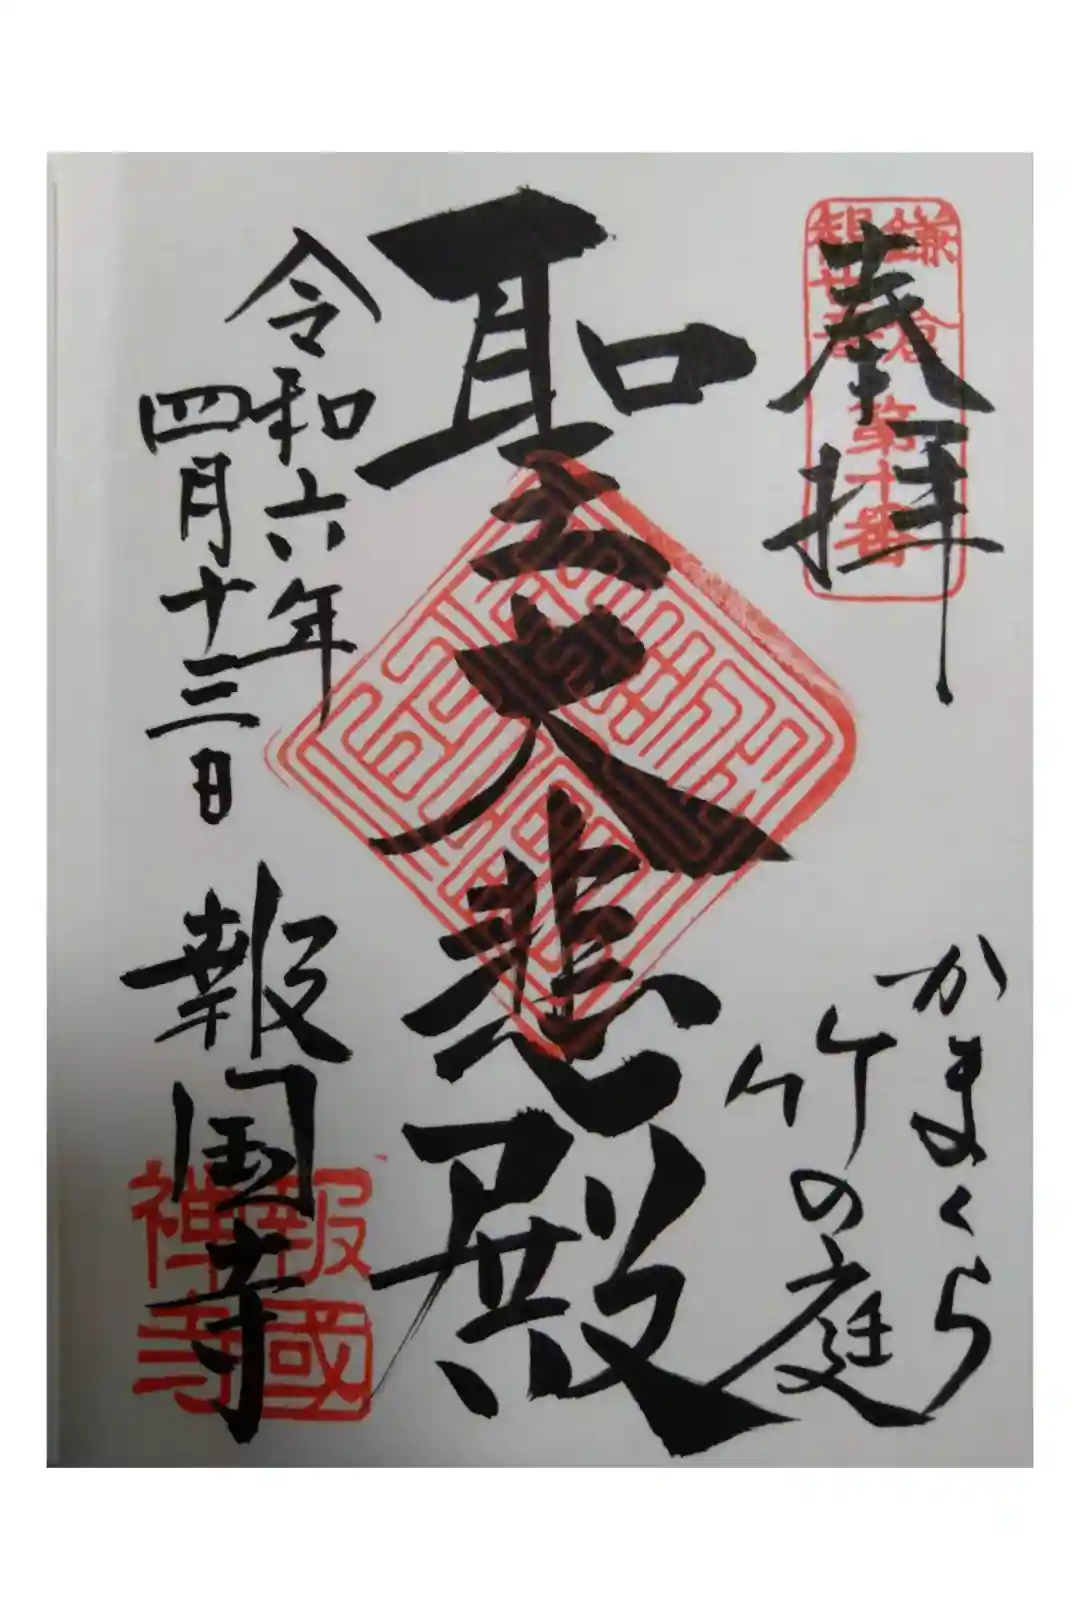 奉拝
鎌倉第十番
かまくら
竹の庭
聖大悲殿
令和六年
四月十三日
報国寺
報國
禅寺